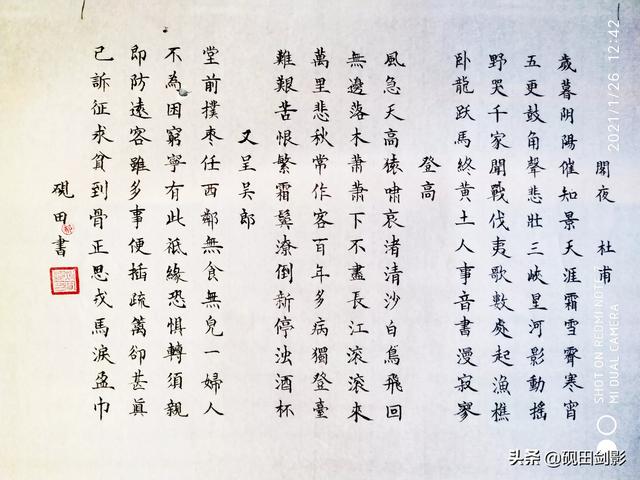 閣夜 杜甫
歲暮阴陽催知景天涯霜雪霽寒宵
五更鼓角聲悲壯三峽星河影動搖
野哭千家聞戰伐夷歌數處起漁樵
卧龍跃馬終黄土人事音書漫寂寥
登高
風急天高猿啸哀渚清沙白鳥飛回
無邊落木萧萧下不盡長江滚滚來
萬里悲秋常作客百年多病獨登臺
難艱苦恨繁霜鬓潦倒新停浊酒杯
又呈吴郎
堂前撲枣任西鄰無食無兒一婦人
不為困窮寧有此祗緣恐惧轉須親
即防遠客雖多事便插疏篱卻甚真
已訴征求貧到骨正思戎馬淚盈巾
硯田書
2021/1/26 12:42
SHOT ON REDMI NOTE
MI DUAL CAMERA
头条 @砚田剑影